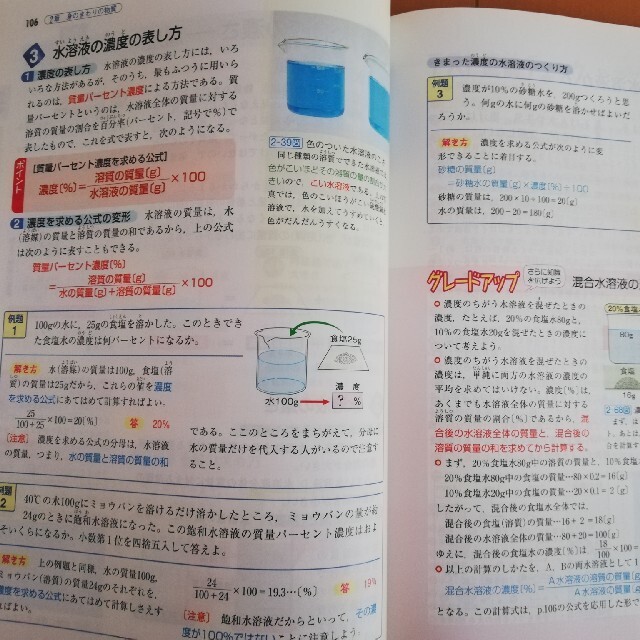 106 2章 身のまわりの物質
3 水溶液の濃度の表し方
1 濃度の表し方 水溶液の濃度の表し方には、いろ
いろな方法があるが、そのうち、最もふつうに用いら
れるのは、質量パーセント濃度による方法である。質
量パーセントというのは、水溶液全体の質量に対する
溶質の質量の割合を百分率(パーセント、記号%)で
表したもので、これを式で表すと、次のようになる。
ポイント
[質量パーセント濃度を求める公式]
濃度[%]=溶質の質量[g]/水溶液の質量[g]×100
2 濃度を求める公式の変形 水溶液の質量は、水
(溶媒)の質量と溶質の質量の和であるから、上の公式
は次のように表すこともできる。
質量パーセント濃度[%]
=溶質の質量[g]/水の質量[g]+溶質の質量[g]×100
2-39図 色のついた水溶液のこさ
同じ種類の溶質でできた水溶液
色がこい方とその溶質の量の
きいので、こい水溶液である。
真では、色のこいほうがこい
溶液で、水を加えてうすめていくと
色がだんだんうすくなる。
例題
1
100gの水に、25gの食塩を溶かした。このときでき
た食塩水の濃度は何パーセントになるか。
解き方 水(溶媒)の質量は100g、食塩(溶
質)の質量は25gだから、これらの値を濃度
を求める公式にあてはめて計算すればよい。
25/100+25×100=20[%] 答 20%
[注意] 濃度を求める公式の分母は、水溶液
の質量、つまり、水の質量と溶質の質量の和
食塩25g
水100g
濃度
? %
である。ここのところをまちがえて、分母に
水の質量だけを代入する人がいるので注意す
ること。
例題
2
40℃の水100gにミョウバンを溶けるだけ溶かしたところ、ミョウバンの量が
24gのときに飽和水溶液になった。この飽和水溶液の質量パーセント濃度はおよ
そいくらになるか。小数第1位を四捨五入して答えよ。
解き方 上の例題と同様、水の質量100g、
ミョウバン(溶質)の質量24gのそれぞれを、
濃度を求める公式にあてはめて計算しさえす
ればよい。
24/100+24×100=19.3…[%] 答 19%
[注意] 飽和水溶液だからといって、その濃
度が100%ではないことに注意しよう。
きまった濃度の水溶液のつくり方
例題
3
濃度が10%の砂糖水を、200gつくろうと思
う。何gの水に何gの砂糖を溶かせばよいだ
ろうか。
解き方 濃度を求める公式が次のように変
形できることに着目する。
砂糖の質量[g]
=砂糖水の質量[g]×濃度[%]÷100
砂糖の質量は、200×10÷100=20[g]
水の質量は、200-20=180[g]
グレードアップ さらに知識を広げよう 混合水溶液の
濃度のちがう水溶液を混ぜたときの
濃度、たとえば、20%の食塩水80gと、
10%の食塩水20gを混ぜたときの濃度に
ついて考えよう。
濃度のちがう水溶液を混ぜたときの
濃度は、単純に両方の水溶液の濃度の
平均を求めてはいけない。濃度[%]は、
あくまでも水溶液全体の質量に対する
溶質の質量の割合[%]であるから、混
合後の水溶液全体の質量と、混合後の
溶質の質量の和を求めてから計算する。
まず、20%食塩水80g中の溶質の質量と、10%
20%食塩水80g中の食塩の質量…80×0.2=16[g]
10%食塩水20g中の食塩の質量…20×0.1=2[g]
したがって、混合後の食塩水全体では、
混合後の食塩(溶質)の質量…16+2=18[g]
混合後の食塩水全体の質量…80+20=100[g]
ゆえに、混合後の食塩水の濃度[%]は、18/100×100=
以上の計算のしかたを、A、Bの両水溶液として1
混合水溶液の濃度[%]=A水溶液の溶質の質量[g]
A水溶液の質量[g]
となる。この計算式は、p.106の公式を応用した形で
20%食塩
80g
食塩
16g
2-58図